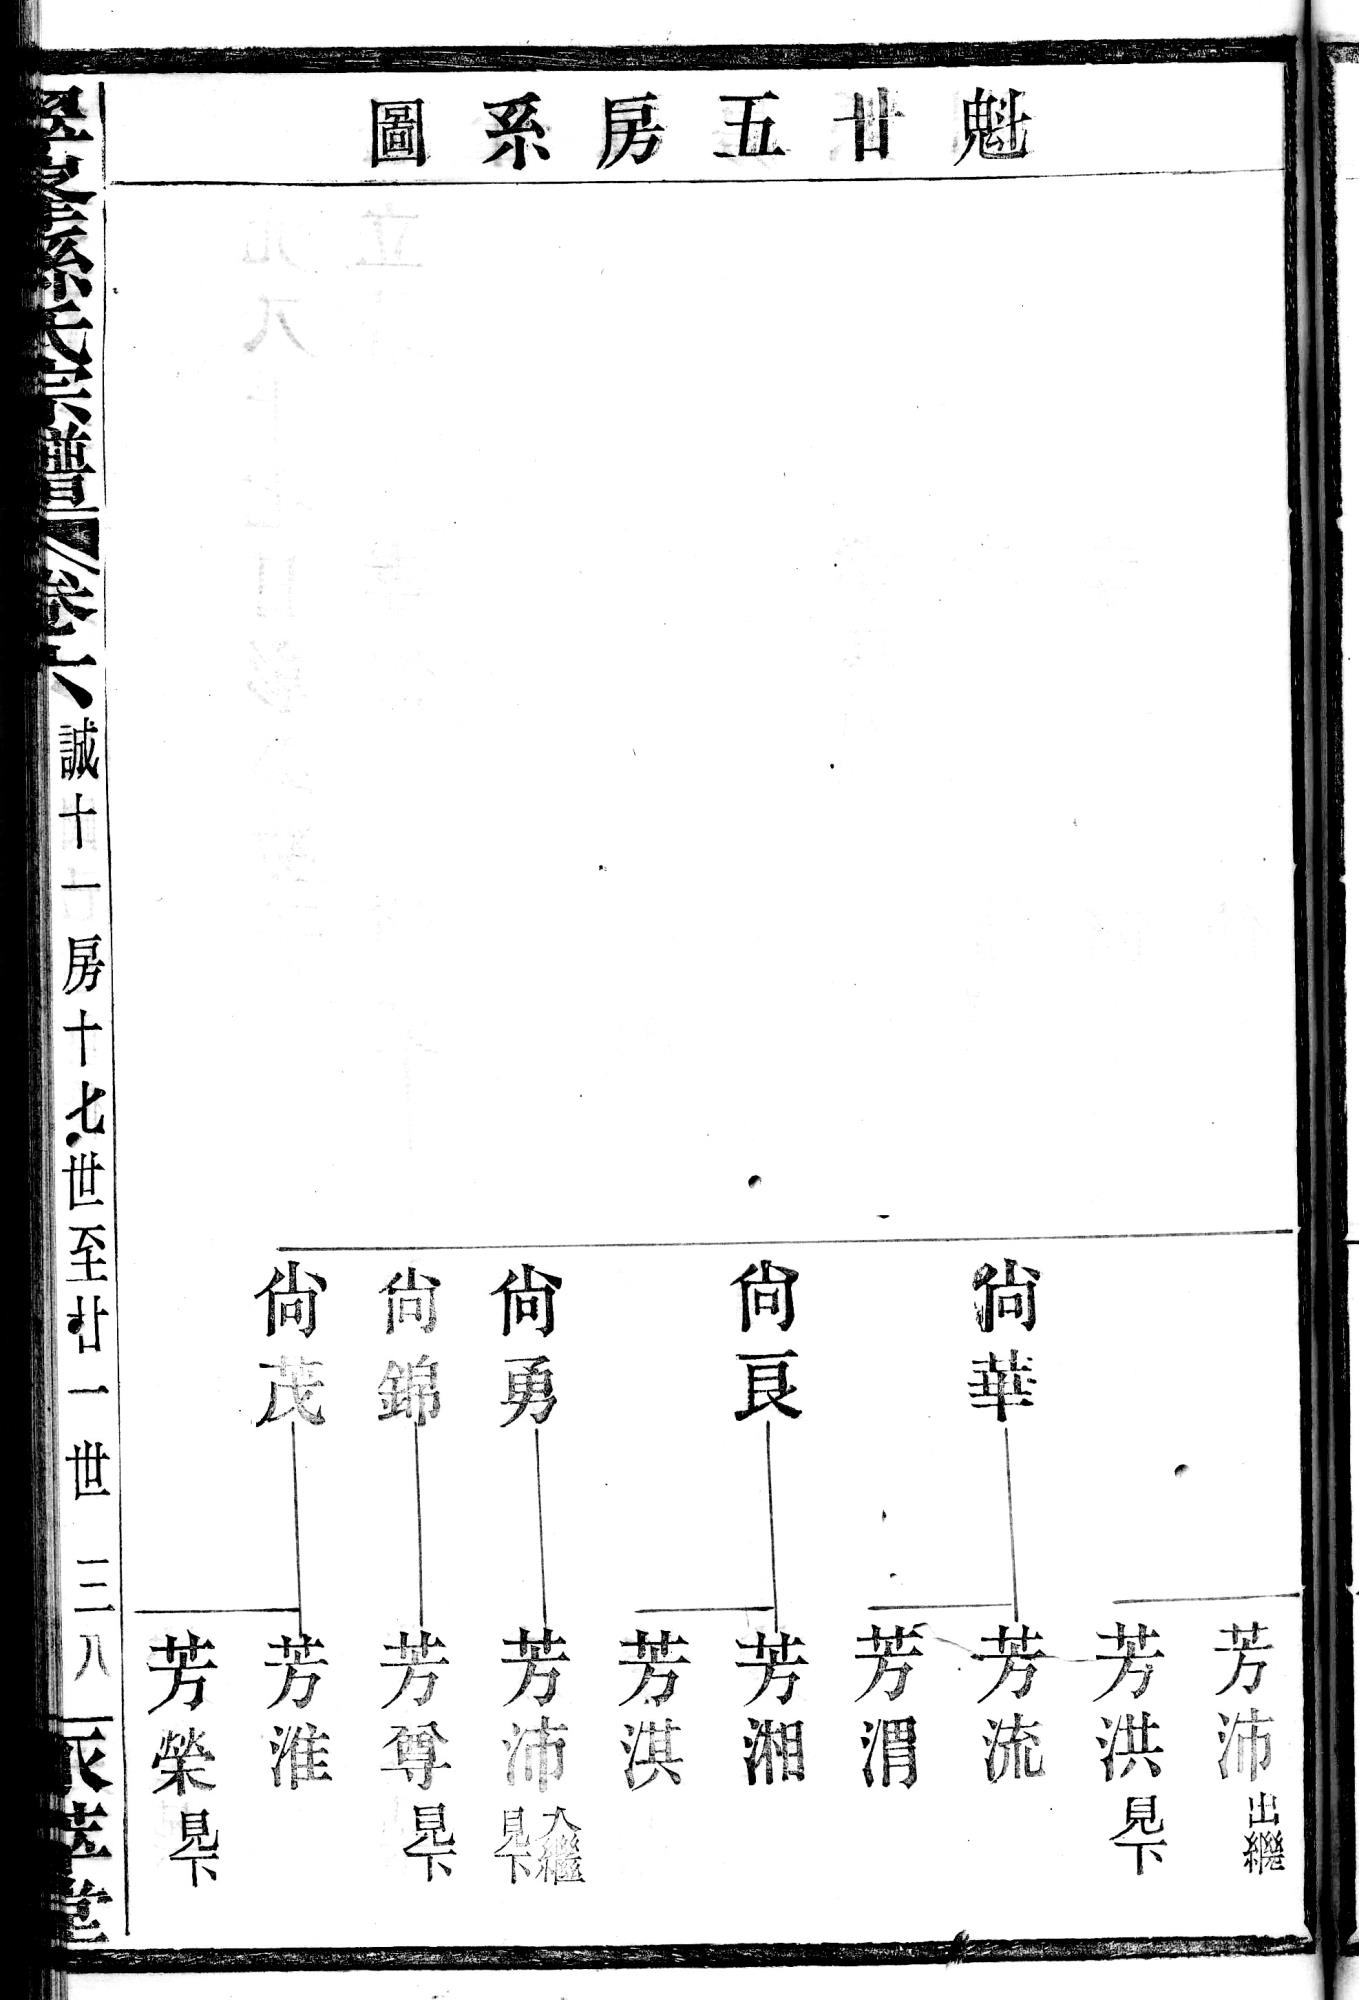 魁廿五房系圖
尙華
尙良
尙勇
尙錦
尙茂
芳沛 出繼
芳洪 見下
芳流
芳渭
芳湘
芳淇
芳沛 入繼 見下
芳尊 見下
芳淮
芳榮 見下
孫氏宗譜 卷六 誠十一房十七世至廿一世 三八 萃堂